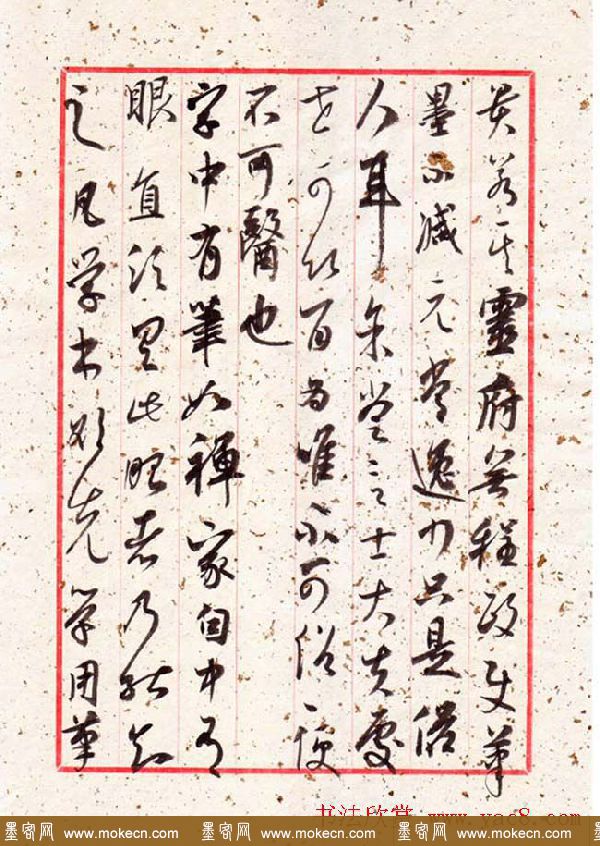 貴若其靈府無程政使筆
墨不減元常逸少只是俗
人耳余嘗言士大夫處
世可以百為唯不可俗〻便
不可醫也
字中有筆如禪家句中有
眼直須具此眼者乃能知
之凡学書欲先學用筆
书法欣赏 www.yac8.com
墨客网 www.mokecn.com 墨客网 www.mokecn.com 墨客网 www.mokecn.com